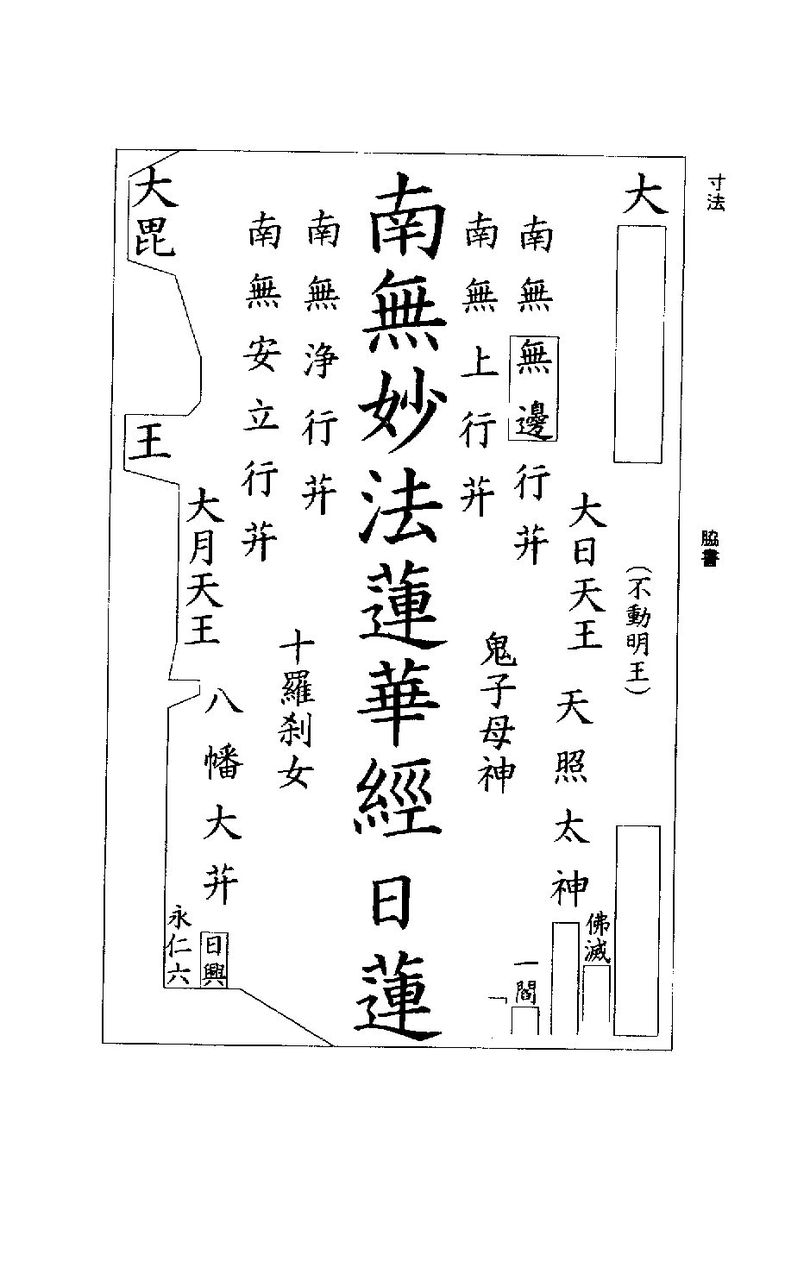 寸法
脇書
大
(不動明王)
佛滅
大日天王
天照太神
南無無邊行井
一閻
南無上行井
鬼子母神
南無妙法蓮華經
日蓮
南無浄行井
十羅刹女
南無安立行井
大月天王
八幡大井
日興
永仁六
大毘
王